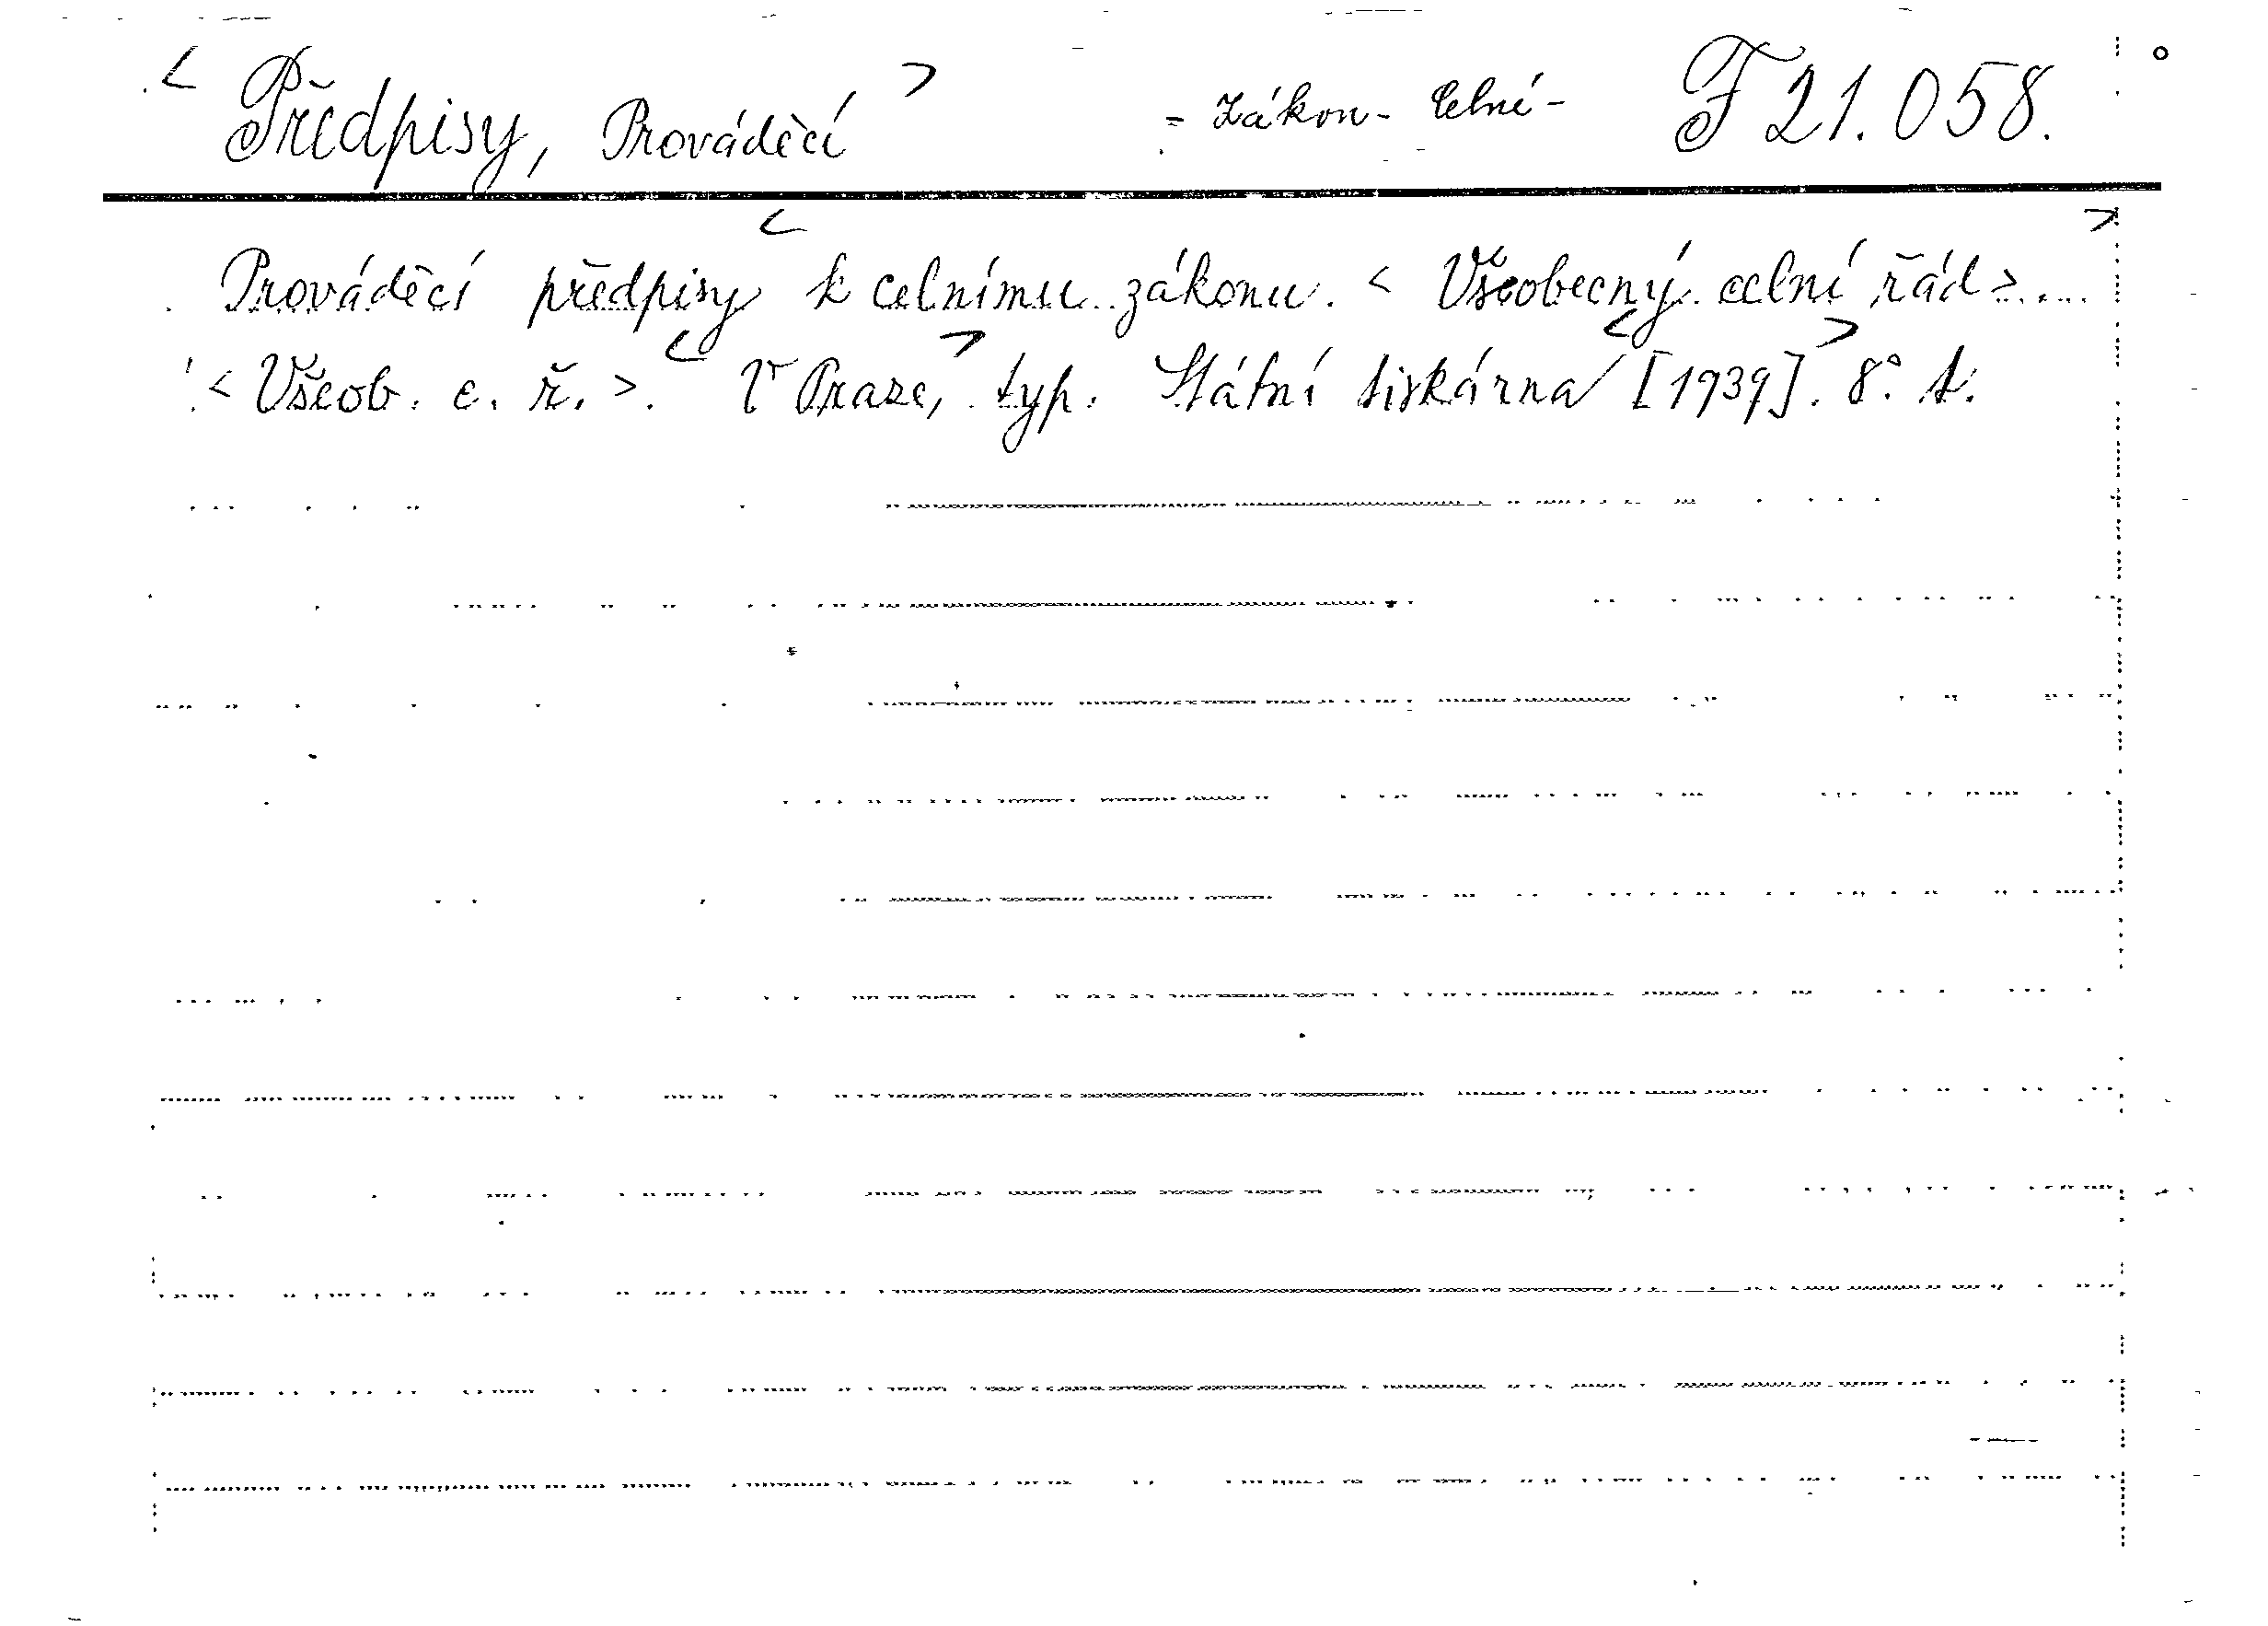 < Předpisy, Prováděcí > - Zákon - Celní - F 21.058.
Prováděcí předpisy k celnímu zákonu. < Všeobecný celní řád >.
< Všeob. c. ř. >. V Praze, typ. Státní tiskárna [1939]. 8°.